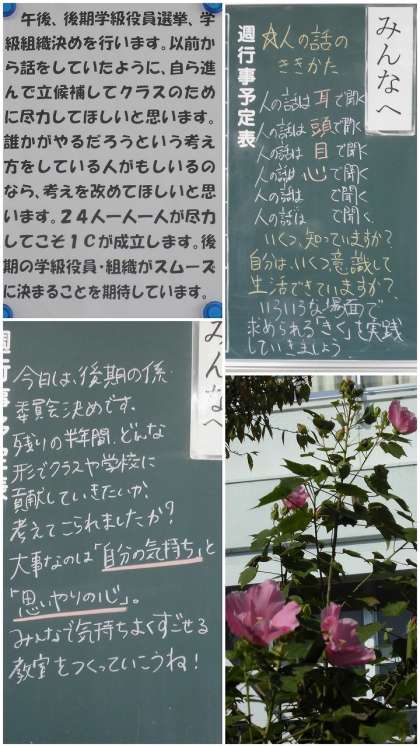 午後、後期学級役員選挙、学
級組織決めを行います。以前か
ら話をしていたように、自ら進ん
で立候補してクラスのため
に尽力してほしいと思います。
誰かがやるだろうという考え
方をしている人がもしいるの
なら、考えを改めてほしいと思
います。２４人一人一人が尽力
してこそ１Ｃが成立します。後
期の学級役員・組織がスムーズ
に決まることを期待しています。
みんなへ
週行事予定表
☆人の話の
ききかた
人の話は 耳で聞く
人の話は 頭で聞く
人の話は 目で聞く
人の話は 心で聞く
人の話は で聞く
人の話は で聞く。
いくつ、知っていますか？
自分は、いくつ意識して
生活できていますか？
いろいろな場面で
求められる「きく」を実践
していきましょう。
みんなへ
週行事予定表
今日は、後期の係・
委員会決めです。
残りの半年間、どんな
形でクラスや学校に
貢献していきたいか、
考えてこられましたか？
大事なのは「自分の気持ち」と
「思いやりの心」。
みんなで気持ちよくすごせる
教室をつくっていこうね！